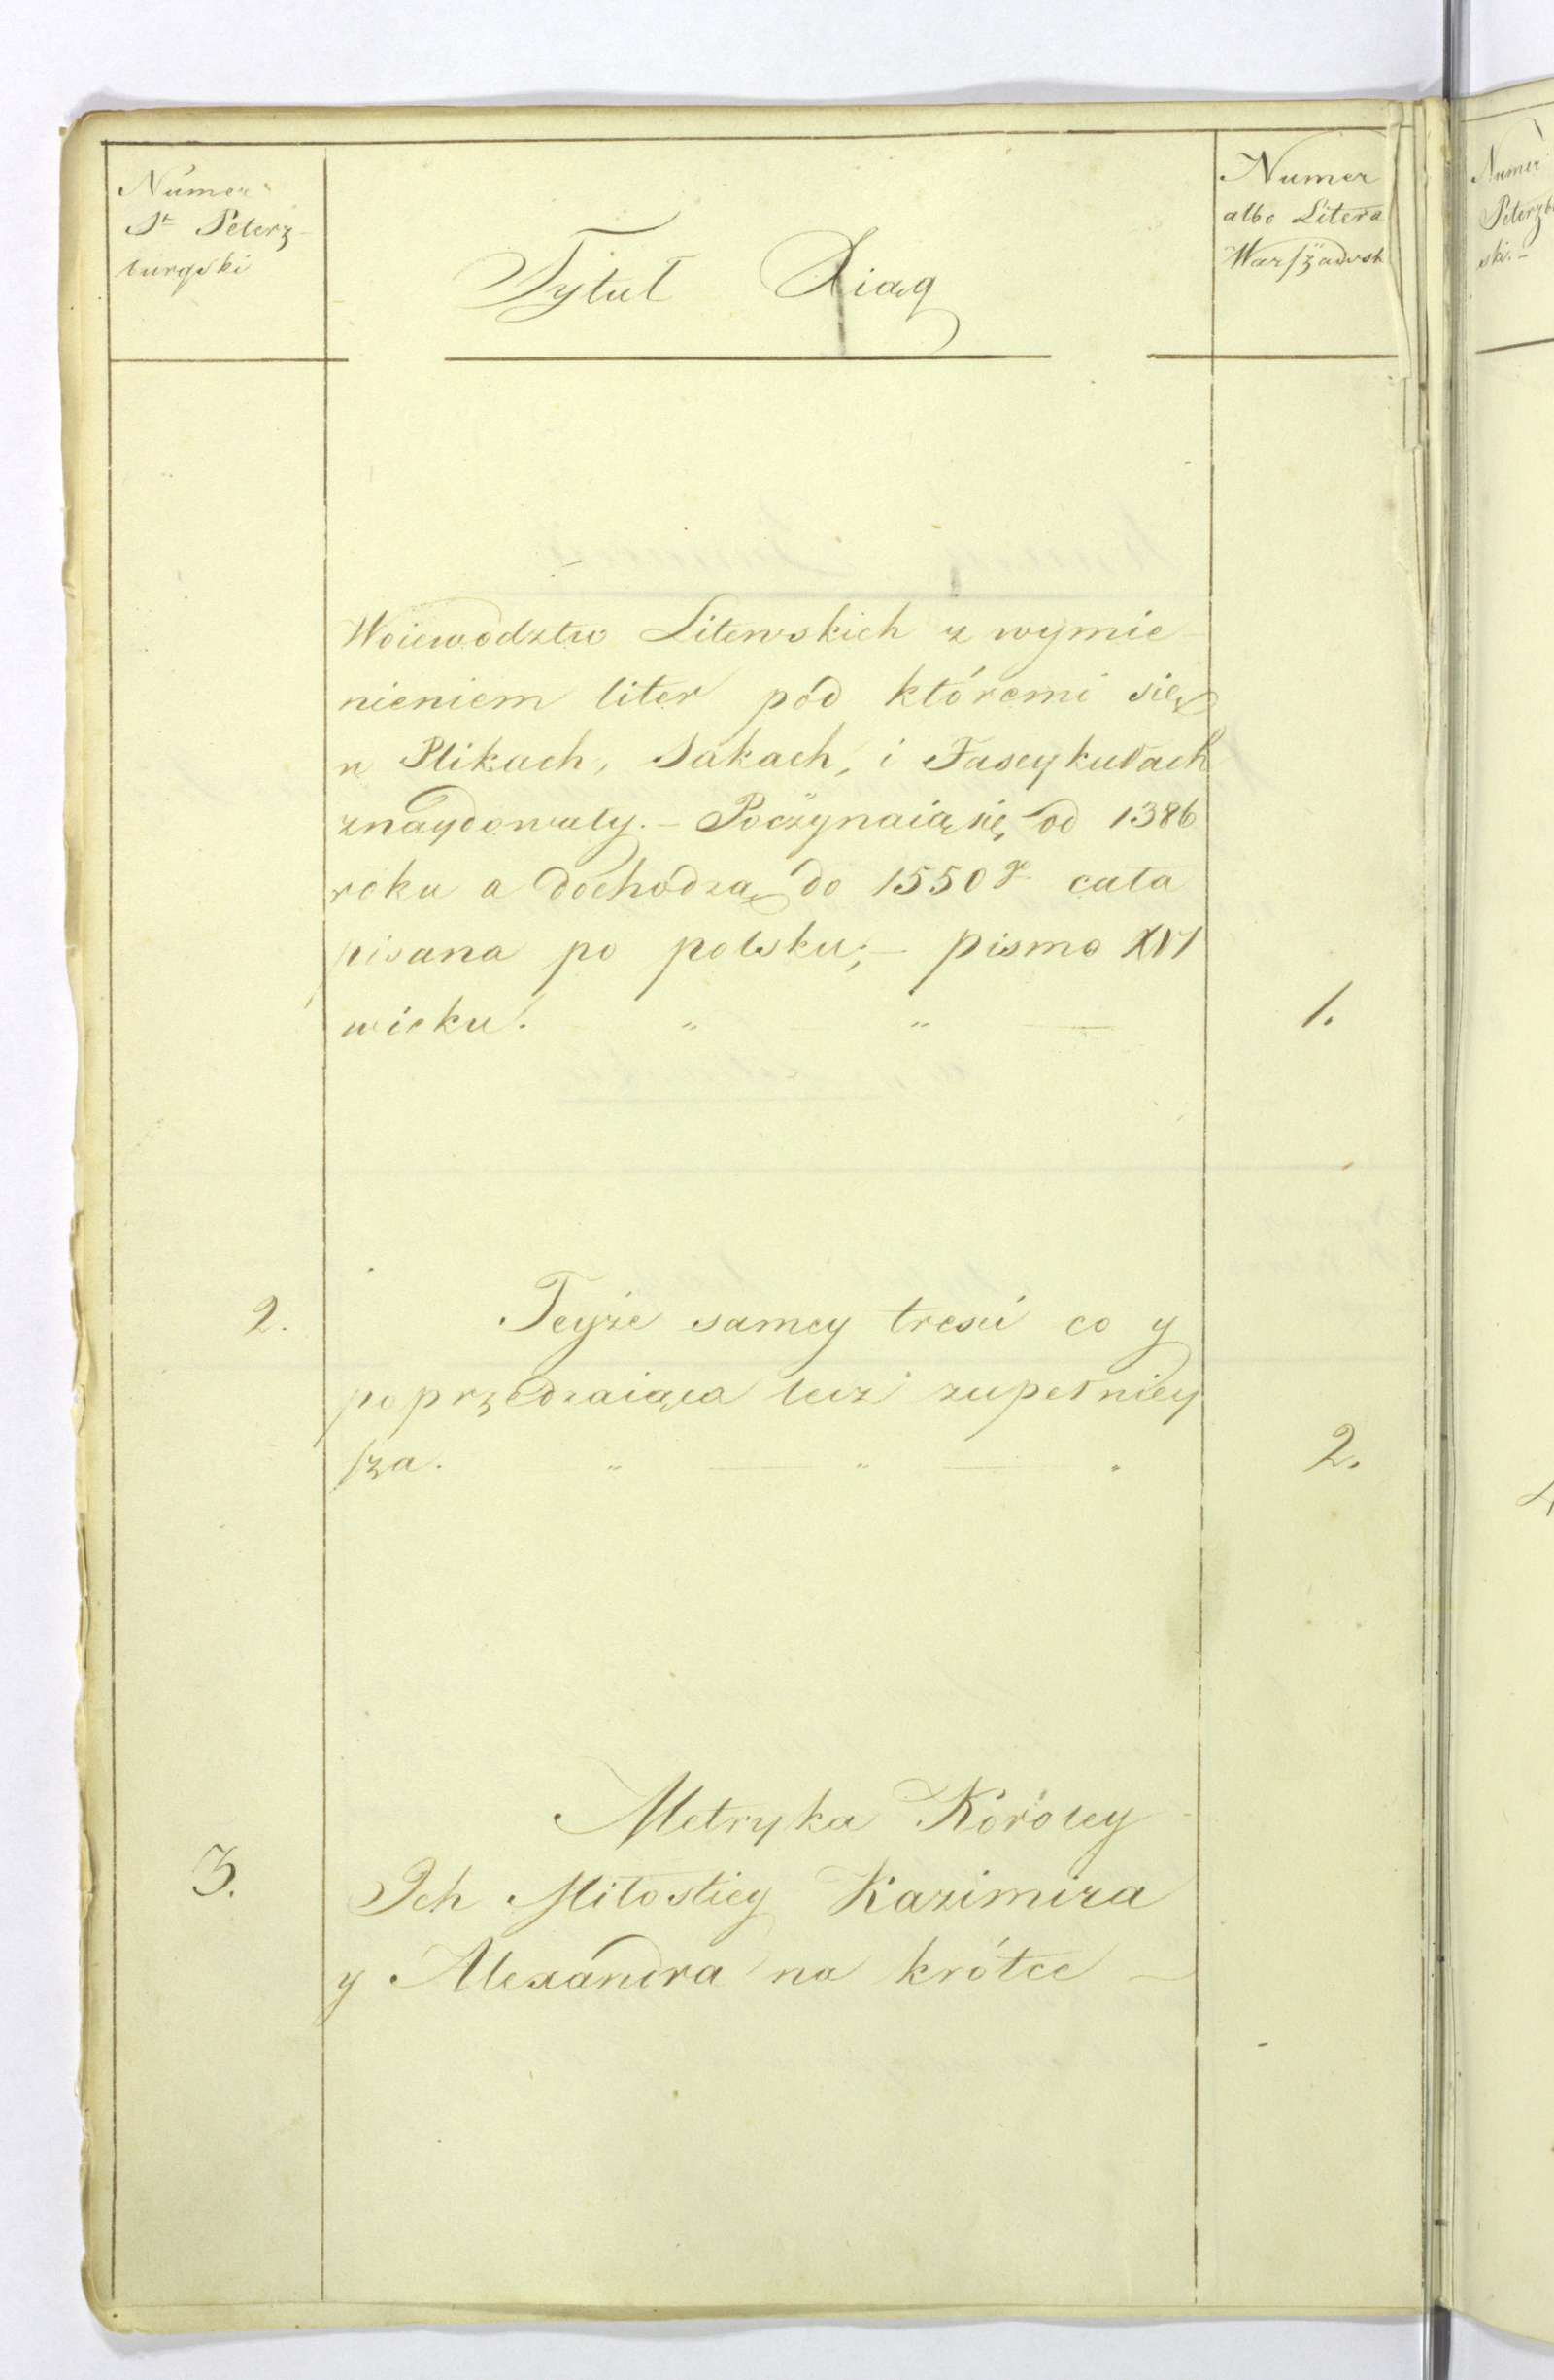 Numer
St Peterz-
burgski
Tytuł Xiąg
Numer
albo Litera
Warszawsk
Woiewodztw Litewskich z wymie
nieniem liter pód któremi się
w Plikach, Sakach, i Fascykułach
znaydowały. - Poczynaią się od 1386
roku a dochodzą do 1550 r cała
pisana po polsku; - pismo XVI
wieku. " " —
1.
2.
Teyże samey treści co y
poprzedzaiąca lecz zupełniey
sza. " — " — "
2.
3.
Metryka Koroley
Ich Miłostiey Kazimira
y Alexandra na krótce —
Numer
Peterzb
ski.-
4